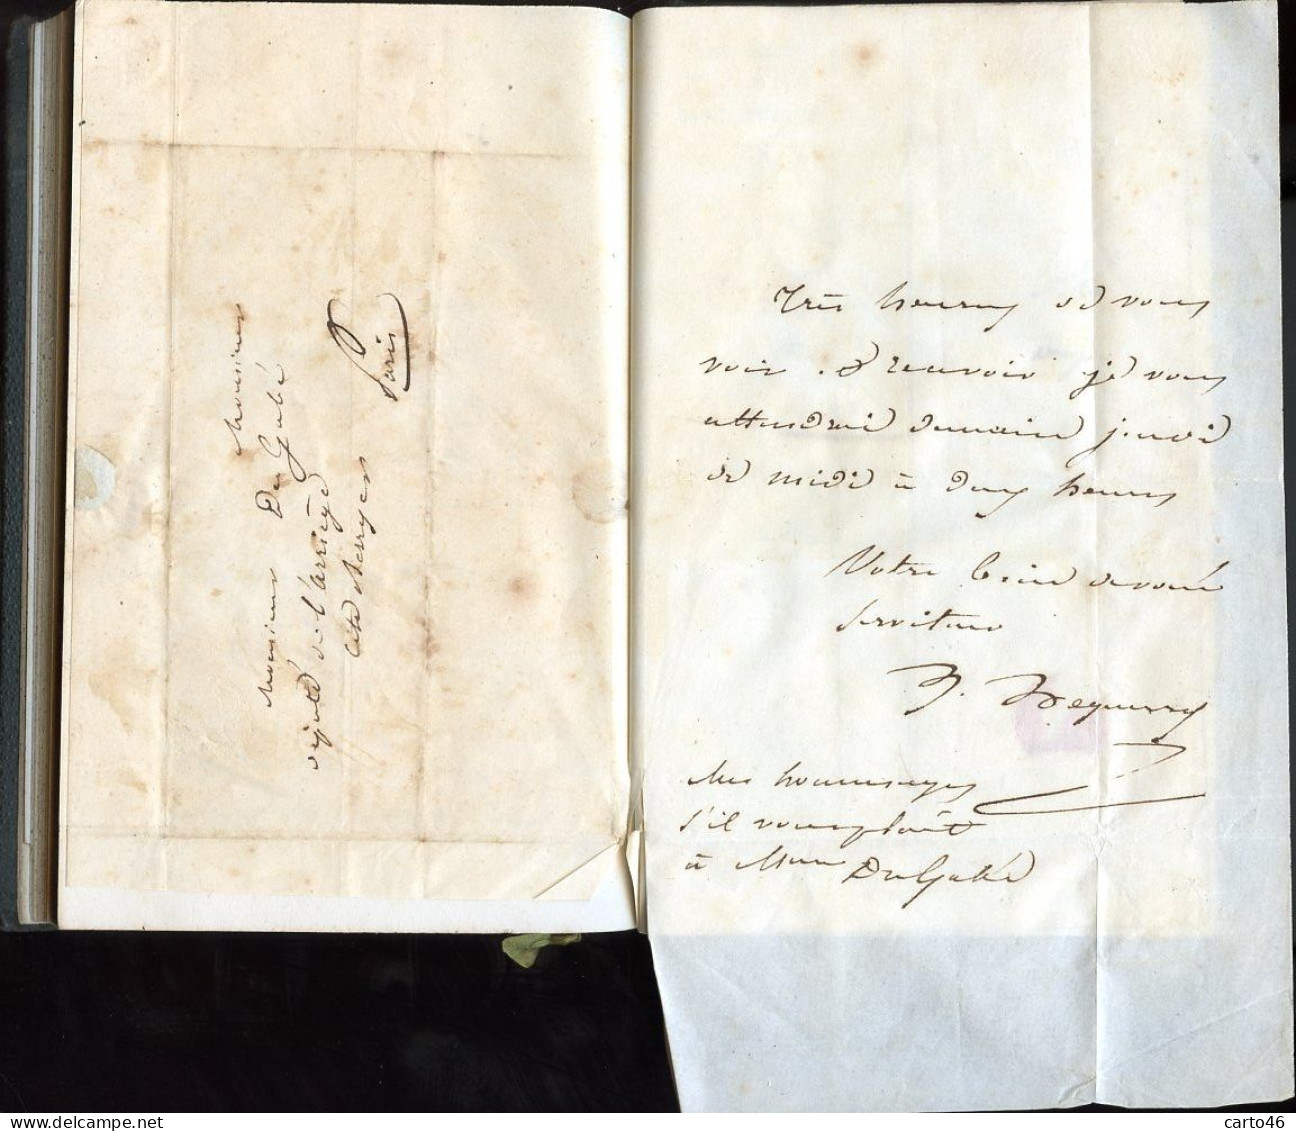 Monsieur
Monsieur Du Gabé
député de l'arriège
cité Berryer
Paris
Très heureux de vous
voir & recevoir je vous
attendrai demain jeudi
de midi à deux heures
Votre bien dévoué
serviteur
J. Deguerry
Mes hommages
s'il vous plait
à Mme DuGabé
carto46
www.delcampe.net